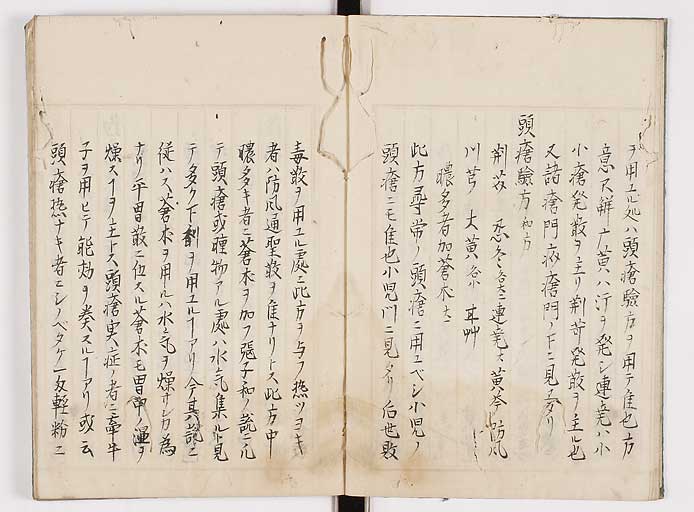 ヲ用ユル処ハ頭瘡験方ヲ用テ佳也方
意不解ナリ麻黄ハ汗ヲ発シ連堯ハ小
小瘡発散ヲ主リ荊芥発散ヲ主ル也
又諸瘡門疥瘡門ノ下ニ見タリ
頭瘡験方 和方
荊芥 忍冬 各大 連堯 大 黄芩 防風
川芎 大黄 各小 甘艸
膿多者加蒼朮 大
此方尋常ノ頭瘡ニ用ユベシ小児ノ
頭瘡ニモ佳也小児門ニ見タリ后世敗
毒散ヲ用ユル処ニ此方ヲ与フ熱ツヨキ
者ハ防風通聖散ヲ佳ナリトス此方中
膿多キ者ニ蒼朮ヲ加フ張子和ノ説ニ凡
テ頭瘡或腫物アル処ハ水気集ルト見
テ多ク下剤ヲ用ユルヿアリ今其説ニ
従ハス蒼朮ヲ用ルハ水気ヲ燥サンカ為
ナリ平胃散ニ位スル蒼朮モ胃中ノ湿ヲ
燥スヿヲ主トス頭瘡実症ノ者ニ牽牛
子ヲ用ヒテ能効ヲ奏スルヿアリ或云
頭瘡熱ナキ者ニシノベタケ一友軽粉ニ